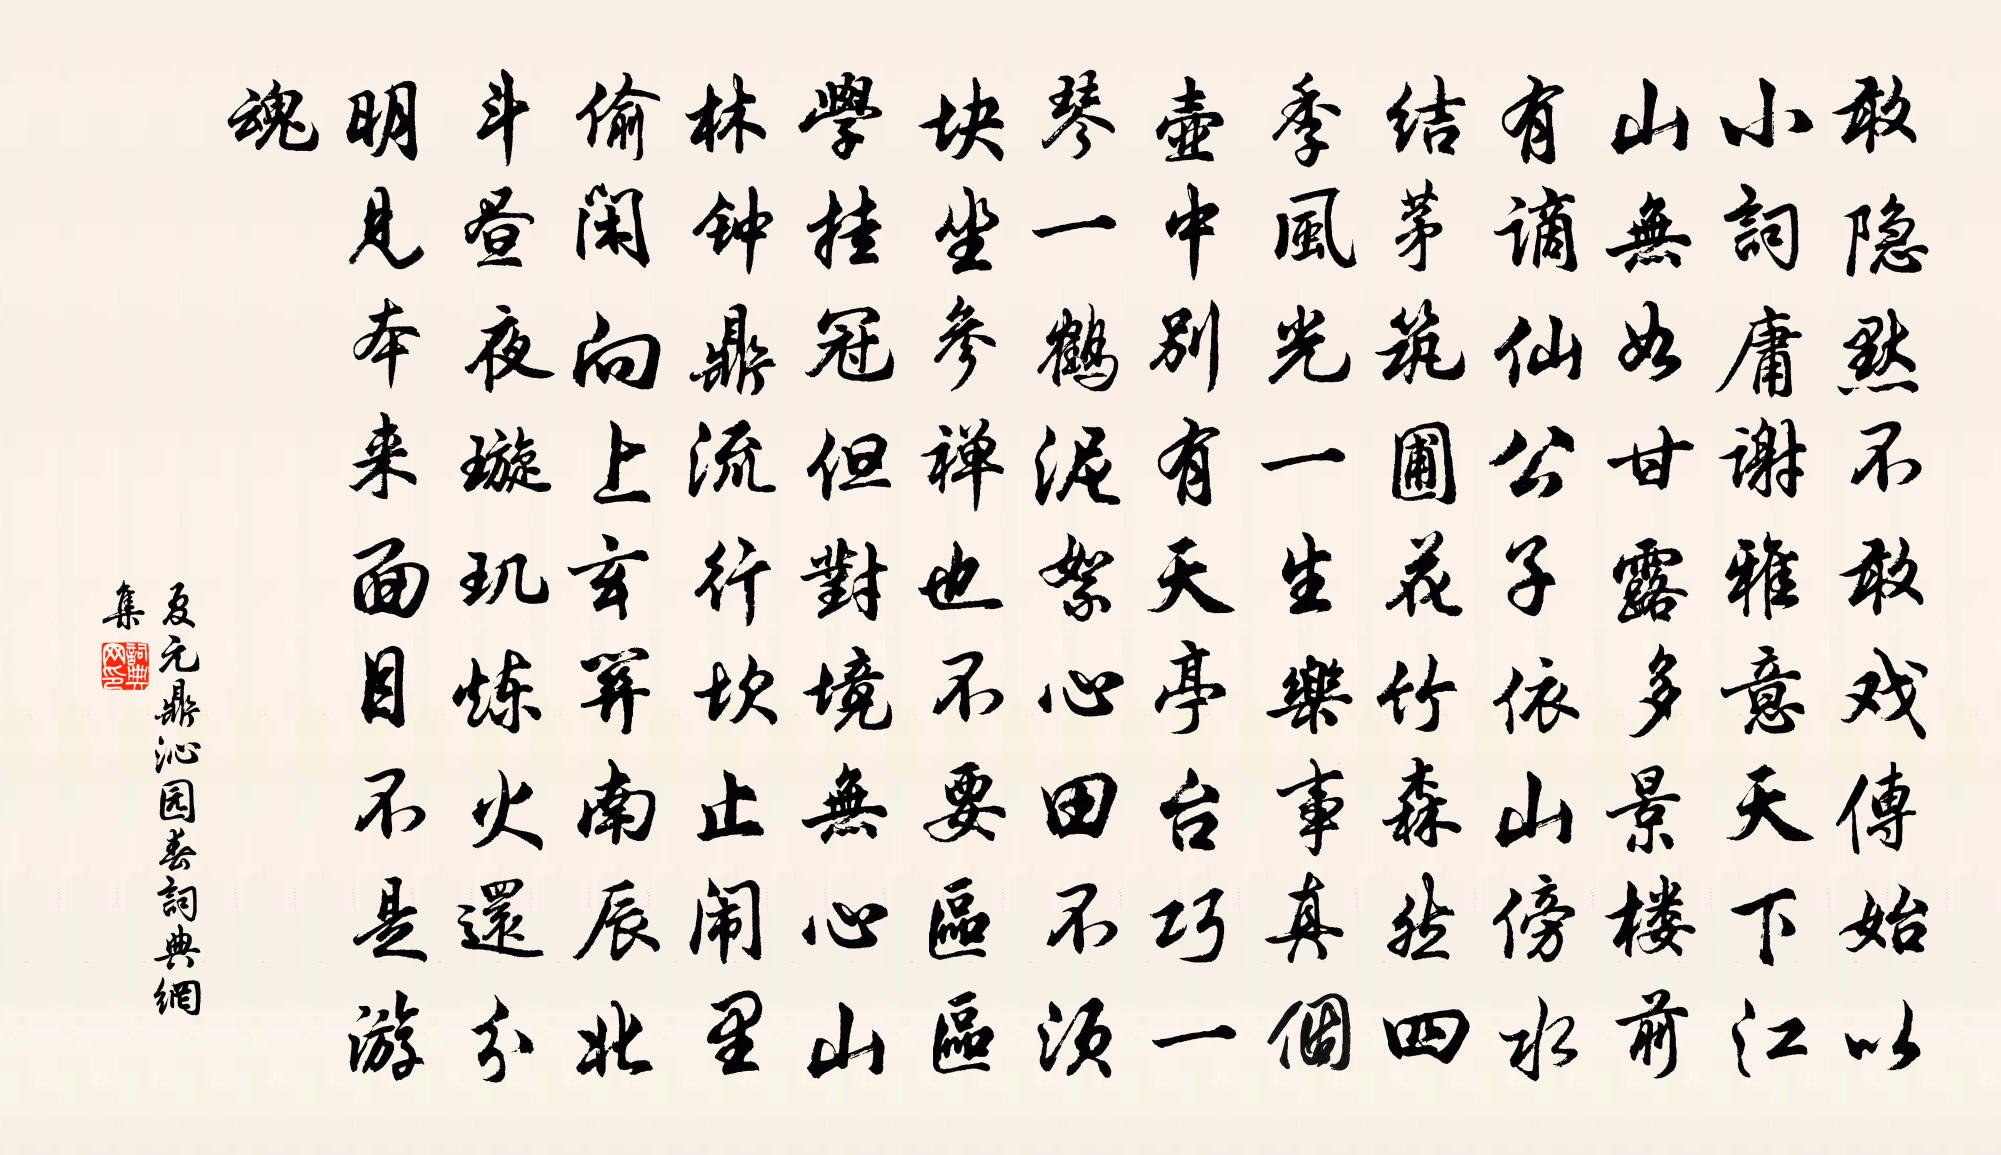 敢隐默不敢戏傳始以
小詞庸谢雅意天下江
山無如甘露多景楼前
有谪仙公子依山傍水
结茅筑圃花竹森然四
季風光一生樂事真個
壶中别有天亭台巧一
琴一鹤泥絮心田不须
块坐参禅也不要區區
學挂冠但對境無心山
林钟鼎流行坎止闹里
偷闲向上玄関南辰北
斗昼夜璇玑炼火還分
明見本来面目不是游
魂
夏元鼎沁园春詞典網
集
詞典网印